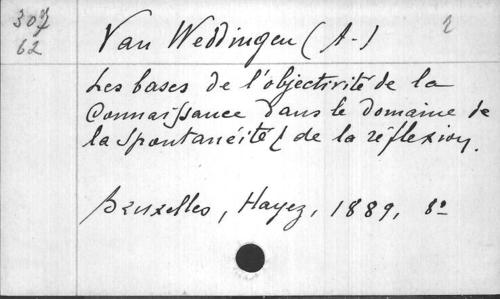 307
62
Van Weddingen (A-)
2
Les bases de l'objectivité de la
Connaissance dans le domaine de
la Spontanéité & de la réflexion.
Bruxelles, Hayez, 1889, 8°